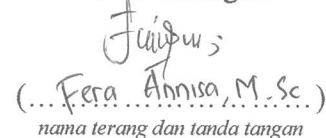 (... Fera Annisa, M.Sc ...)
nama terang dan tanda tangan